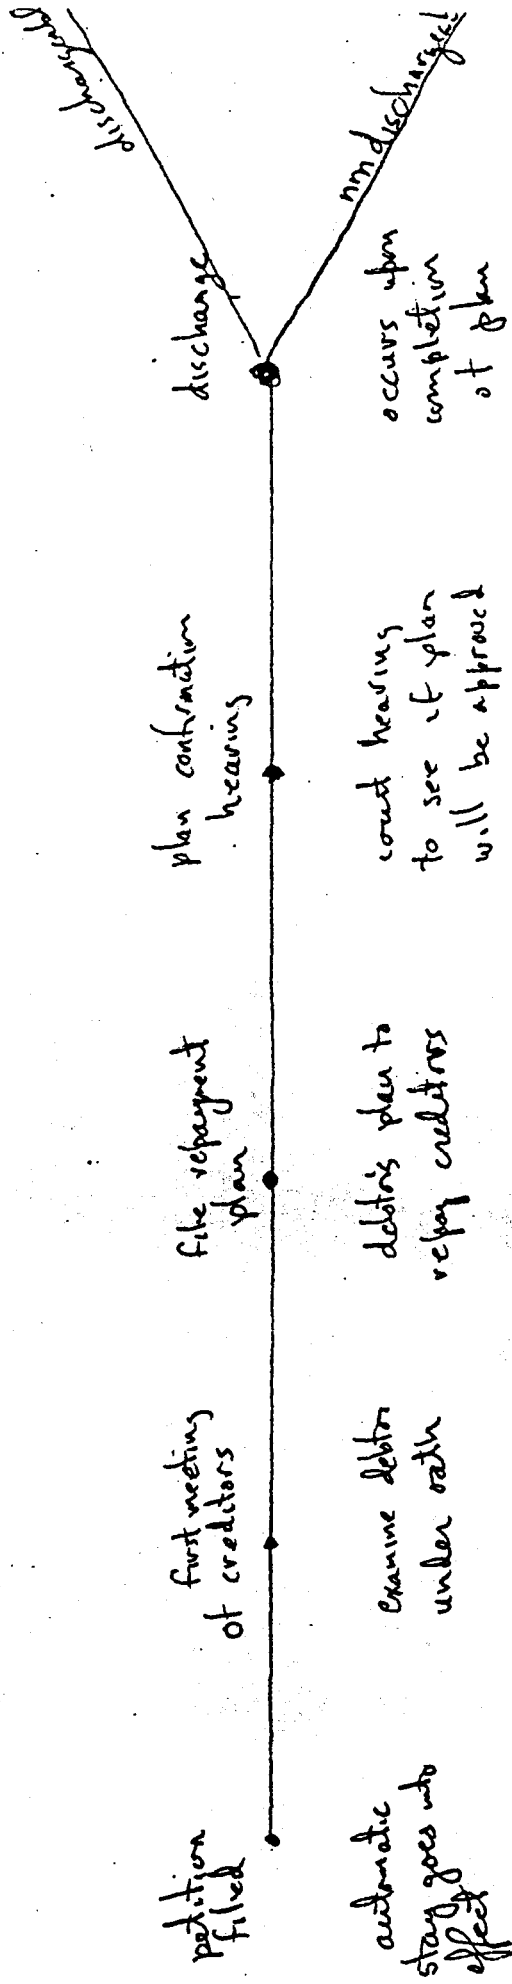 petition
filed
automatic
stay goes into
effect
first meeting
of creditors
examine debtor
under oath
file repayment
plan
debtor's plan to
repay creditors
plan confirmation
hearing
court hearing
to see if plan
will be approved
discharge
occurs upon
completion
of plan
discharged
nondischarged